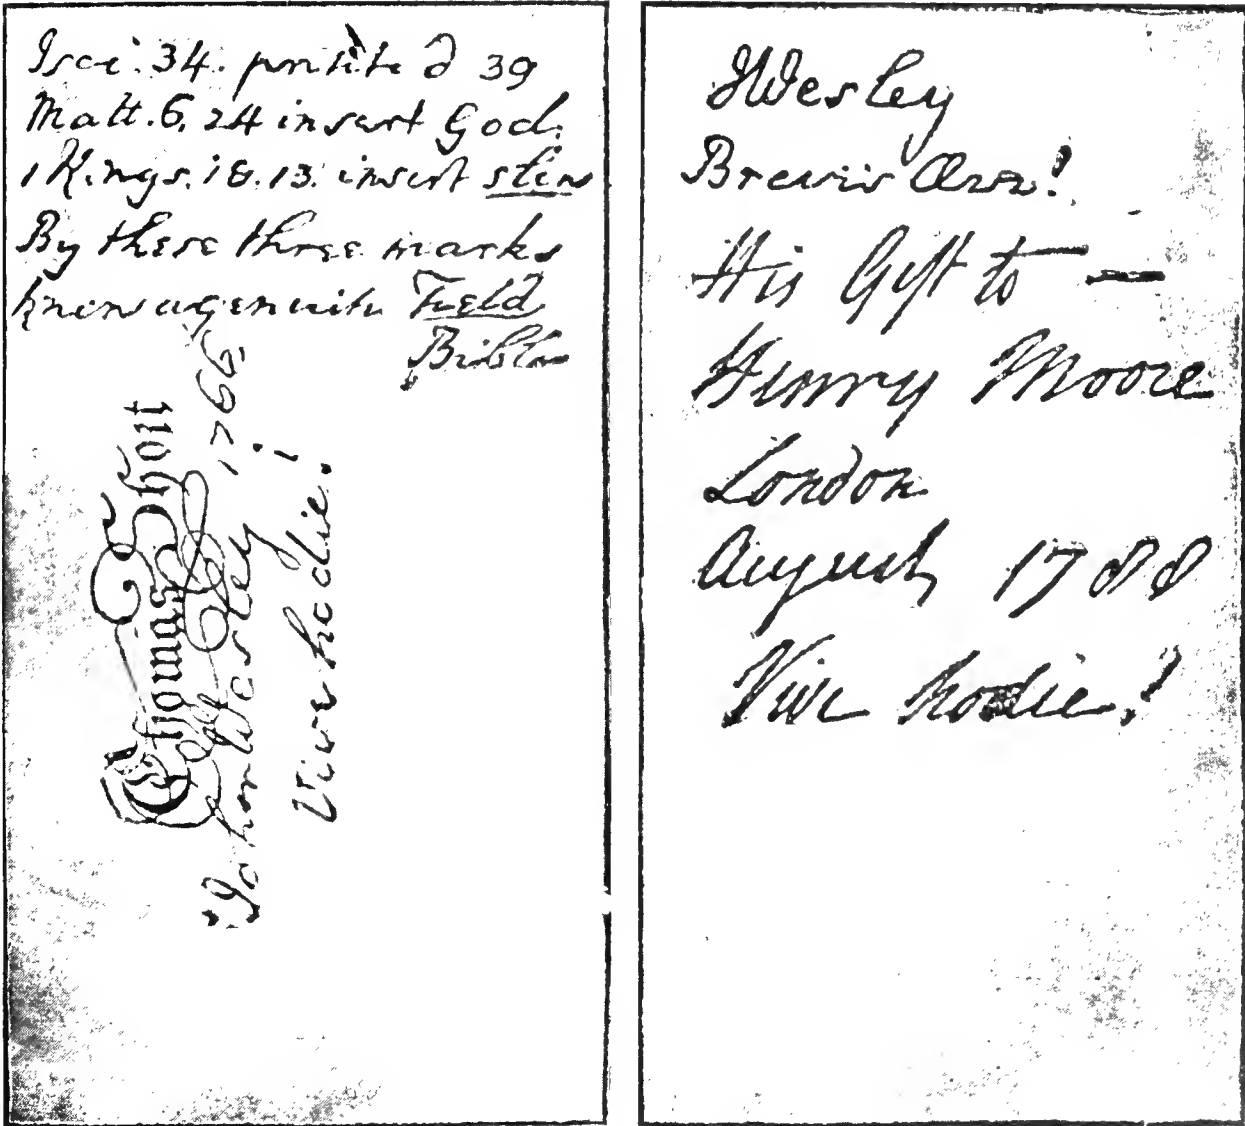 Isai. 34. printed 39
Matt. 6. 24 insert God.
1 Kings. 18. 13. insert slew
By these three marks
know a genuine Field
Bible
Thomas Thoit
John Wesley 1766.
Vive hodie!
JWesley
Brevis
His Gift to —
Henry Moore
London
August 1788
Vive hodie!